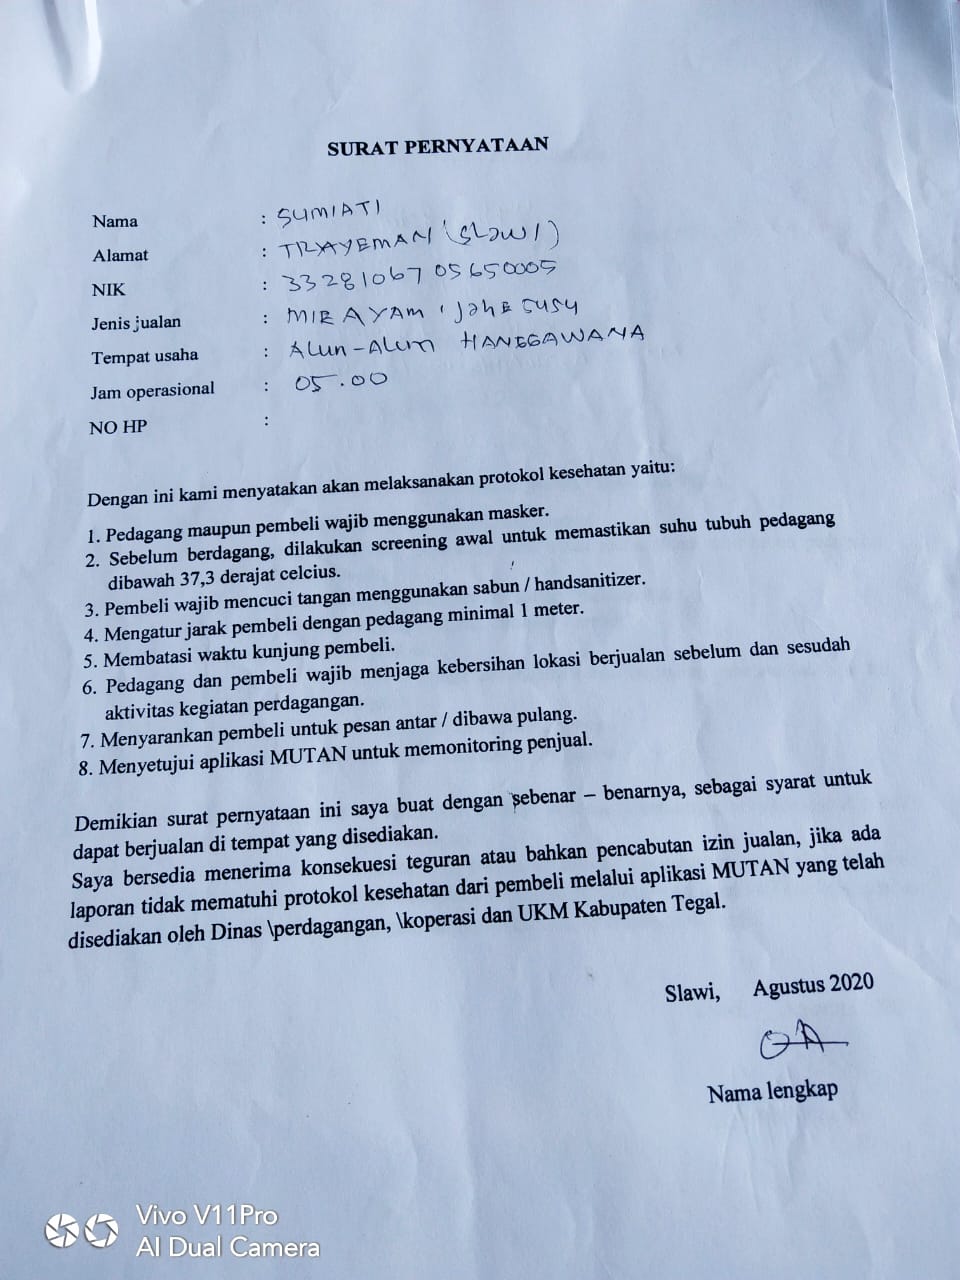 SURAT PERNYATAAN
Nama : SUMIATI
Alamat : TRAYEMAN (SLAWI)
NIK : 3328106705650005
Jenis jualan : MIE AYAM, Jahe susu
Tempat usaha : ALUN-ALUN HANGGAWANA
Jam operasional : 05.00
NO HP :
Dengan ini kami menyatakan akan melaksanakan protokol kesehatan yaitu:
1. Pedagang maupun pembeli wajib menggunakan masker.
2. Sebelum berdagang, dilakukan screening awal untuk memastikan suhu tubuh pedagang
dibawah 37,3 derajat celcius.
3. Pembeli wajib mencuci tangan menggunakan sabun / handsanitizer.
4. Mengatur jarak pembeli dengan pedagang minimal 1 meter.
5. Membatasi waktu kunjung pembeli.
6. Pedagang dan pembeli wajib menjaga kebersihan lokasi berjualan sebelum dan sesudah
aktivitas kegiatan perdagangan.
7. Menyarankan pembeli untuk pesan antar / dibawa pulang.
8. Menyetujui aplikasi MUTAN untuk memonitoring penjual.
Demikian surat pernyataan ini saya buat dengan sebenar – benarnya, sebagai syarat untuk
dapat berjualan di tempat yang disediakan.
Saya bersedia menerima konsekuesi teguran atau bahkan pencabutan izin jualan, jika ada
laporan tidak mematuhi protokol kesehatan dari pembeli melalui aplikasi MUTAN yang telah
disediakan oleh Dinas \perdagangan, \koperasi dan UKM Kabupaten Tegal.
Slawi, Agustus 2020
Nama lengkap
Vivo V11Pro
AI Dual Camera